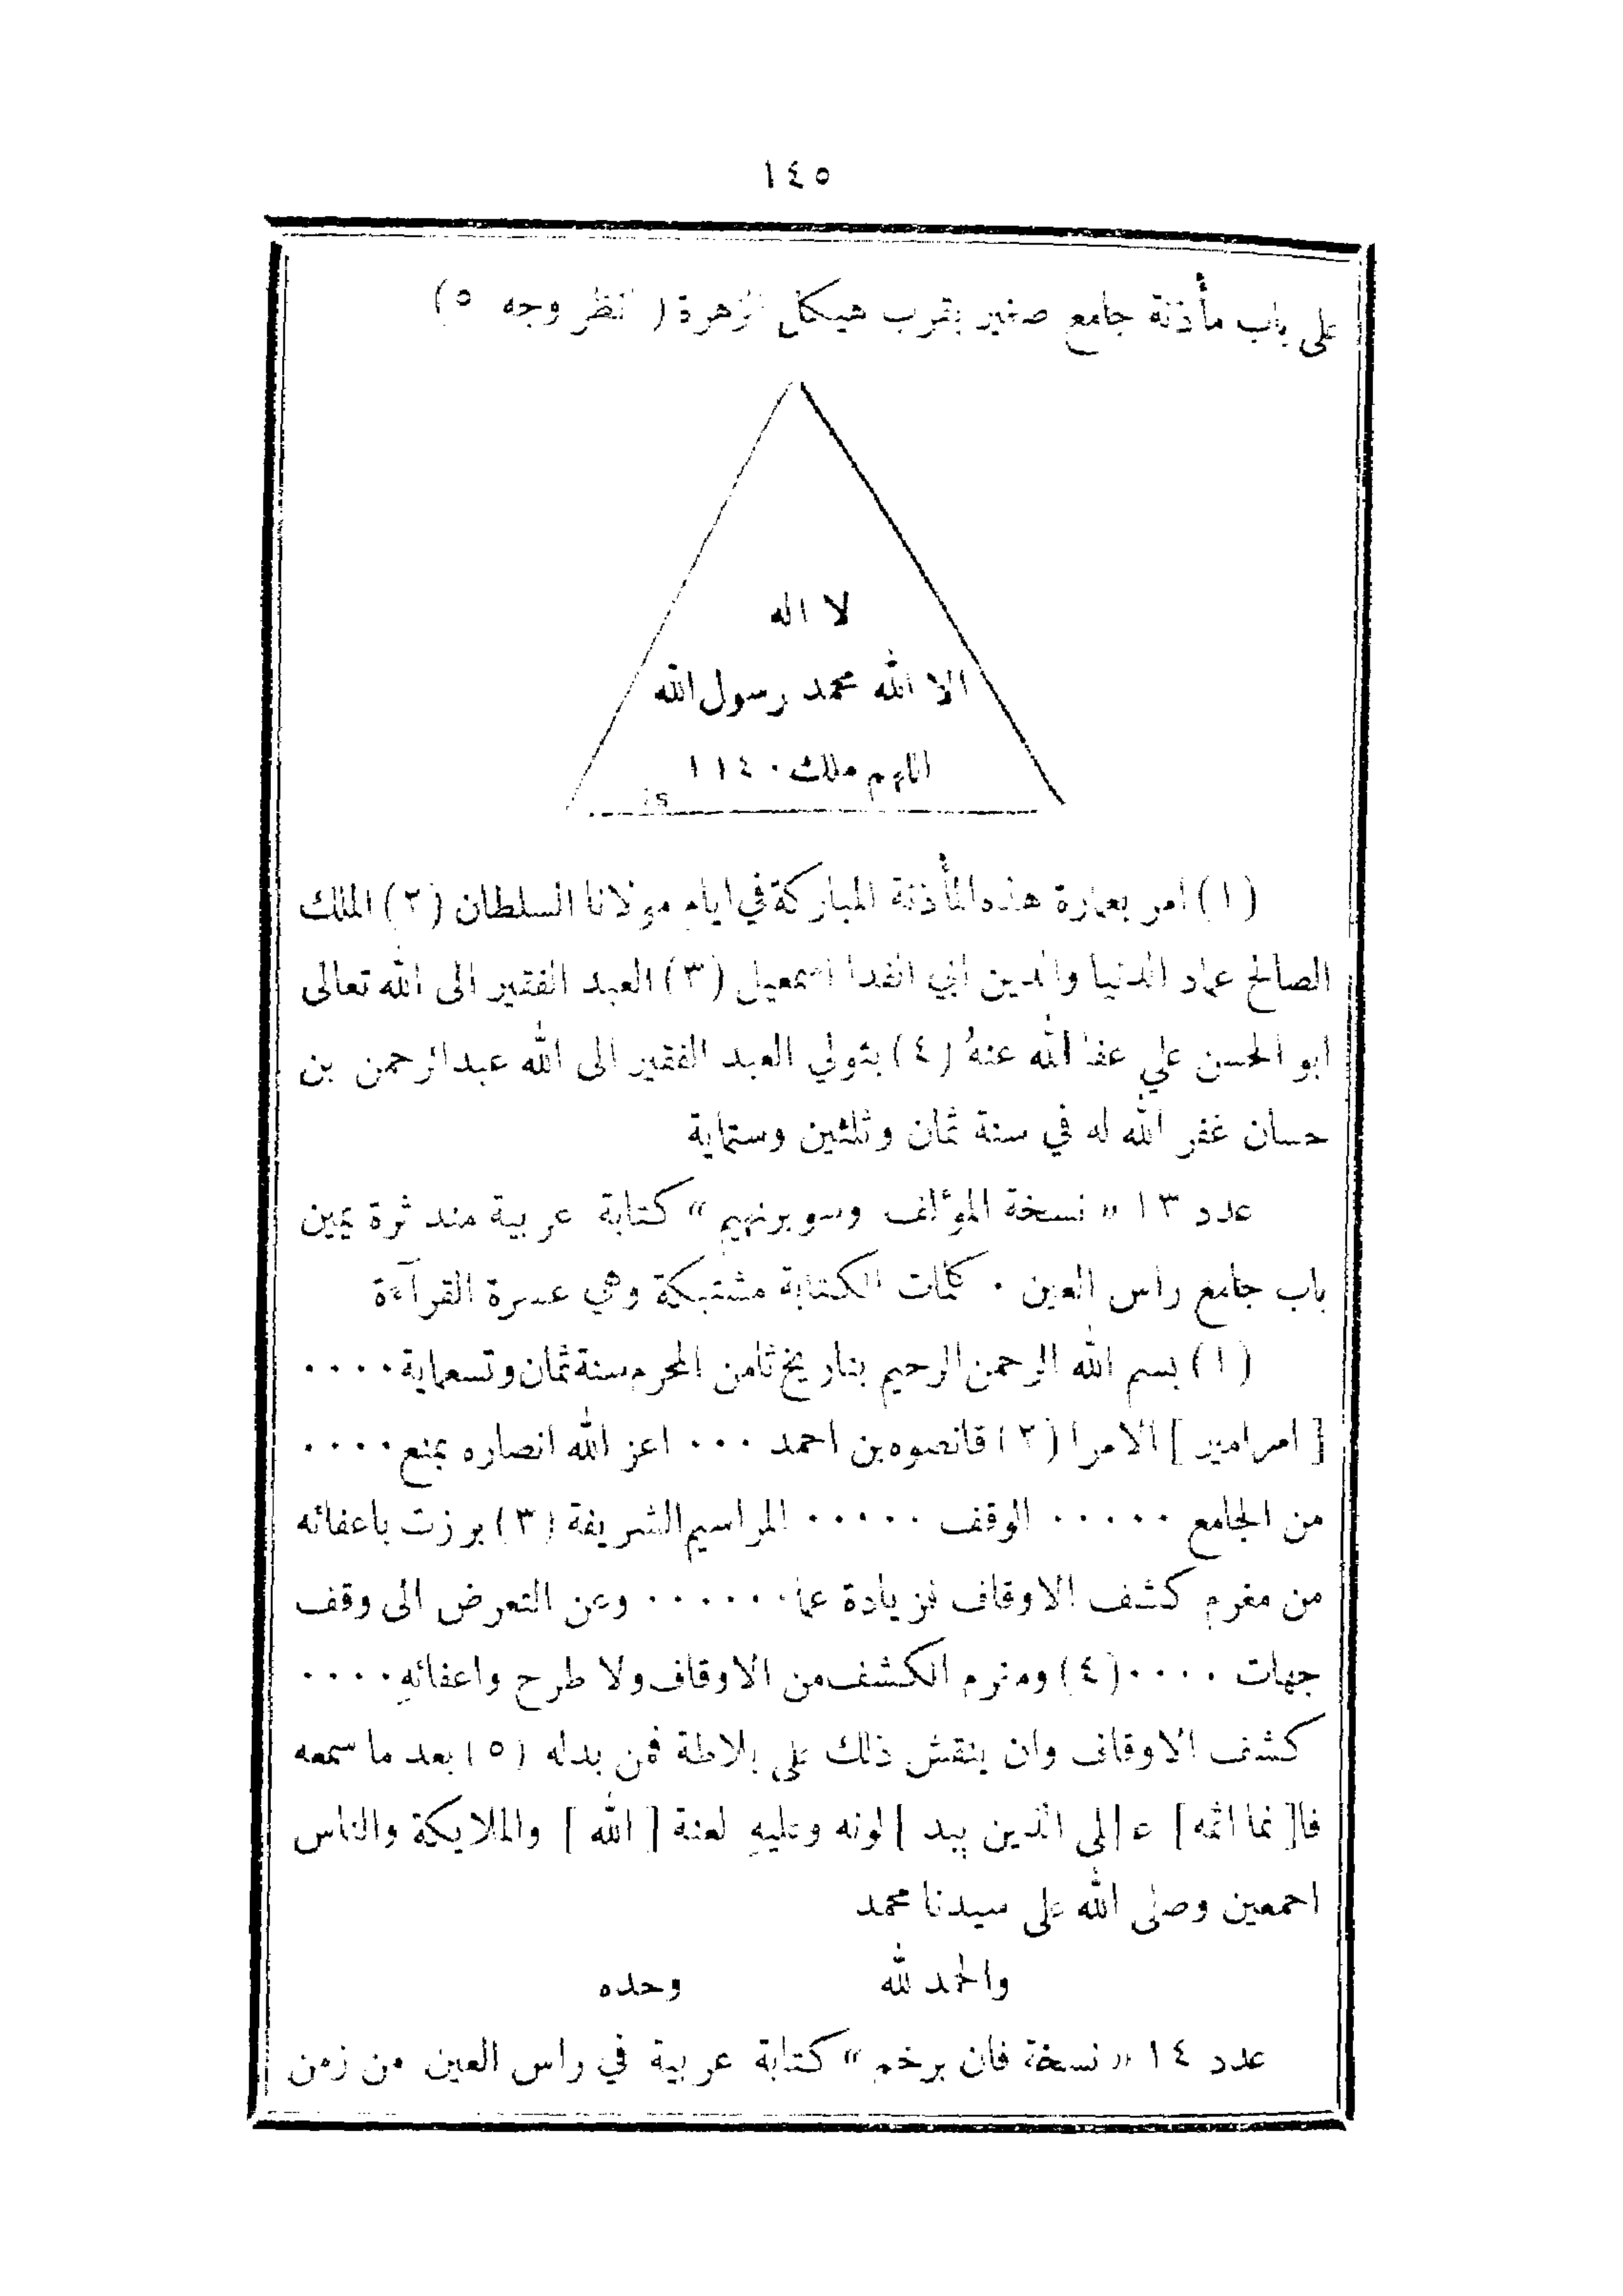 ١٤٥
على باب مأذنة جامع صغير بقرب هيكل الزهرة ( انظر وجه ٥)
لا اله
الا الله محمد رسول الله
اللهم ملك ١١٤٠
(١) امر بعمارة هذه المأذنة المباركة في ايام مولانا السلطان (٢) الملك
الصالح عماد الدنيا والدين ابي الفدا اسمعيل (٣) العبد الفقير الى الله تعالى
ابو الحسن علي عفا الله عنهُ (٤) بتولي العبد الفقير الى الله عبد الرحمن بن
حسان غفر الله له في سنة ثمان وثلثين وستماية
عدد ١٣ « نسخة المؤلف وسوبرنهيم » كتابة عربية مندثرة يمين
باب جامع راس العين ٠ كلمات الكتابة مشتبكة وهي عسرة القرآءة
(١) بسم الله الرحمن الرحيم بتاريخ ثامن المحرم سنة ثمان وتسعماية ٠٠٠٠
[ امر امير ] الامرا (٢) قانصوه بن احمد ٠٠٠ اعز الله انصاره بمنع ٠٠٠٠
من الجامع ٠٠٠٠٠ الوقف ٠٠٠٠٠ المراسيم الشريفة (٣) برزت باعفائه
من مغرم كشف الاوقاف فزيادة عما ٠٠٠٠٠٠ وعن التعرض الى وقف
جهات ٠٠٠٠ (٤) ومغرم الكشف من الاوقاف ولا طرح واعفائهِ ٠٠٠٠
كشف الاوقاف وان ينقش ذلك على بلاطة فمن بدله (٥) بعد ما سمعه
فا[نما اثمه] ع[لى الذين يبد]لونه وعليهِ لعنة [ الله ] والملايكة والناس
اجمعين وصلى الله على سيدنا محمد
والحمد لله وحده
عدد ١٤ « نسخة فان برخم » كتابة عربية في راس العين من زمن